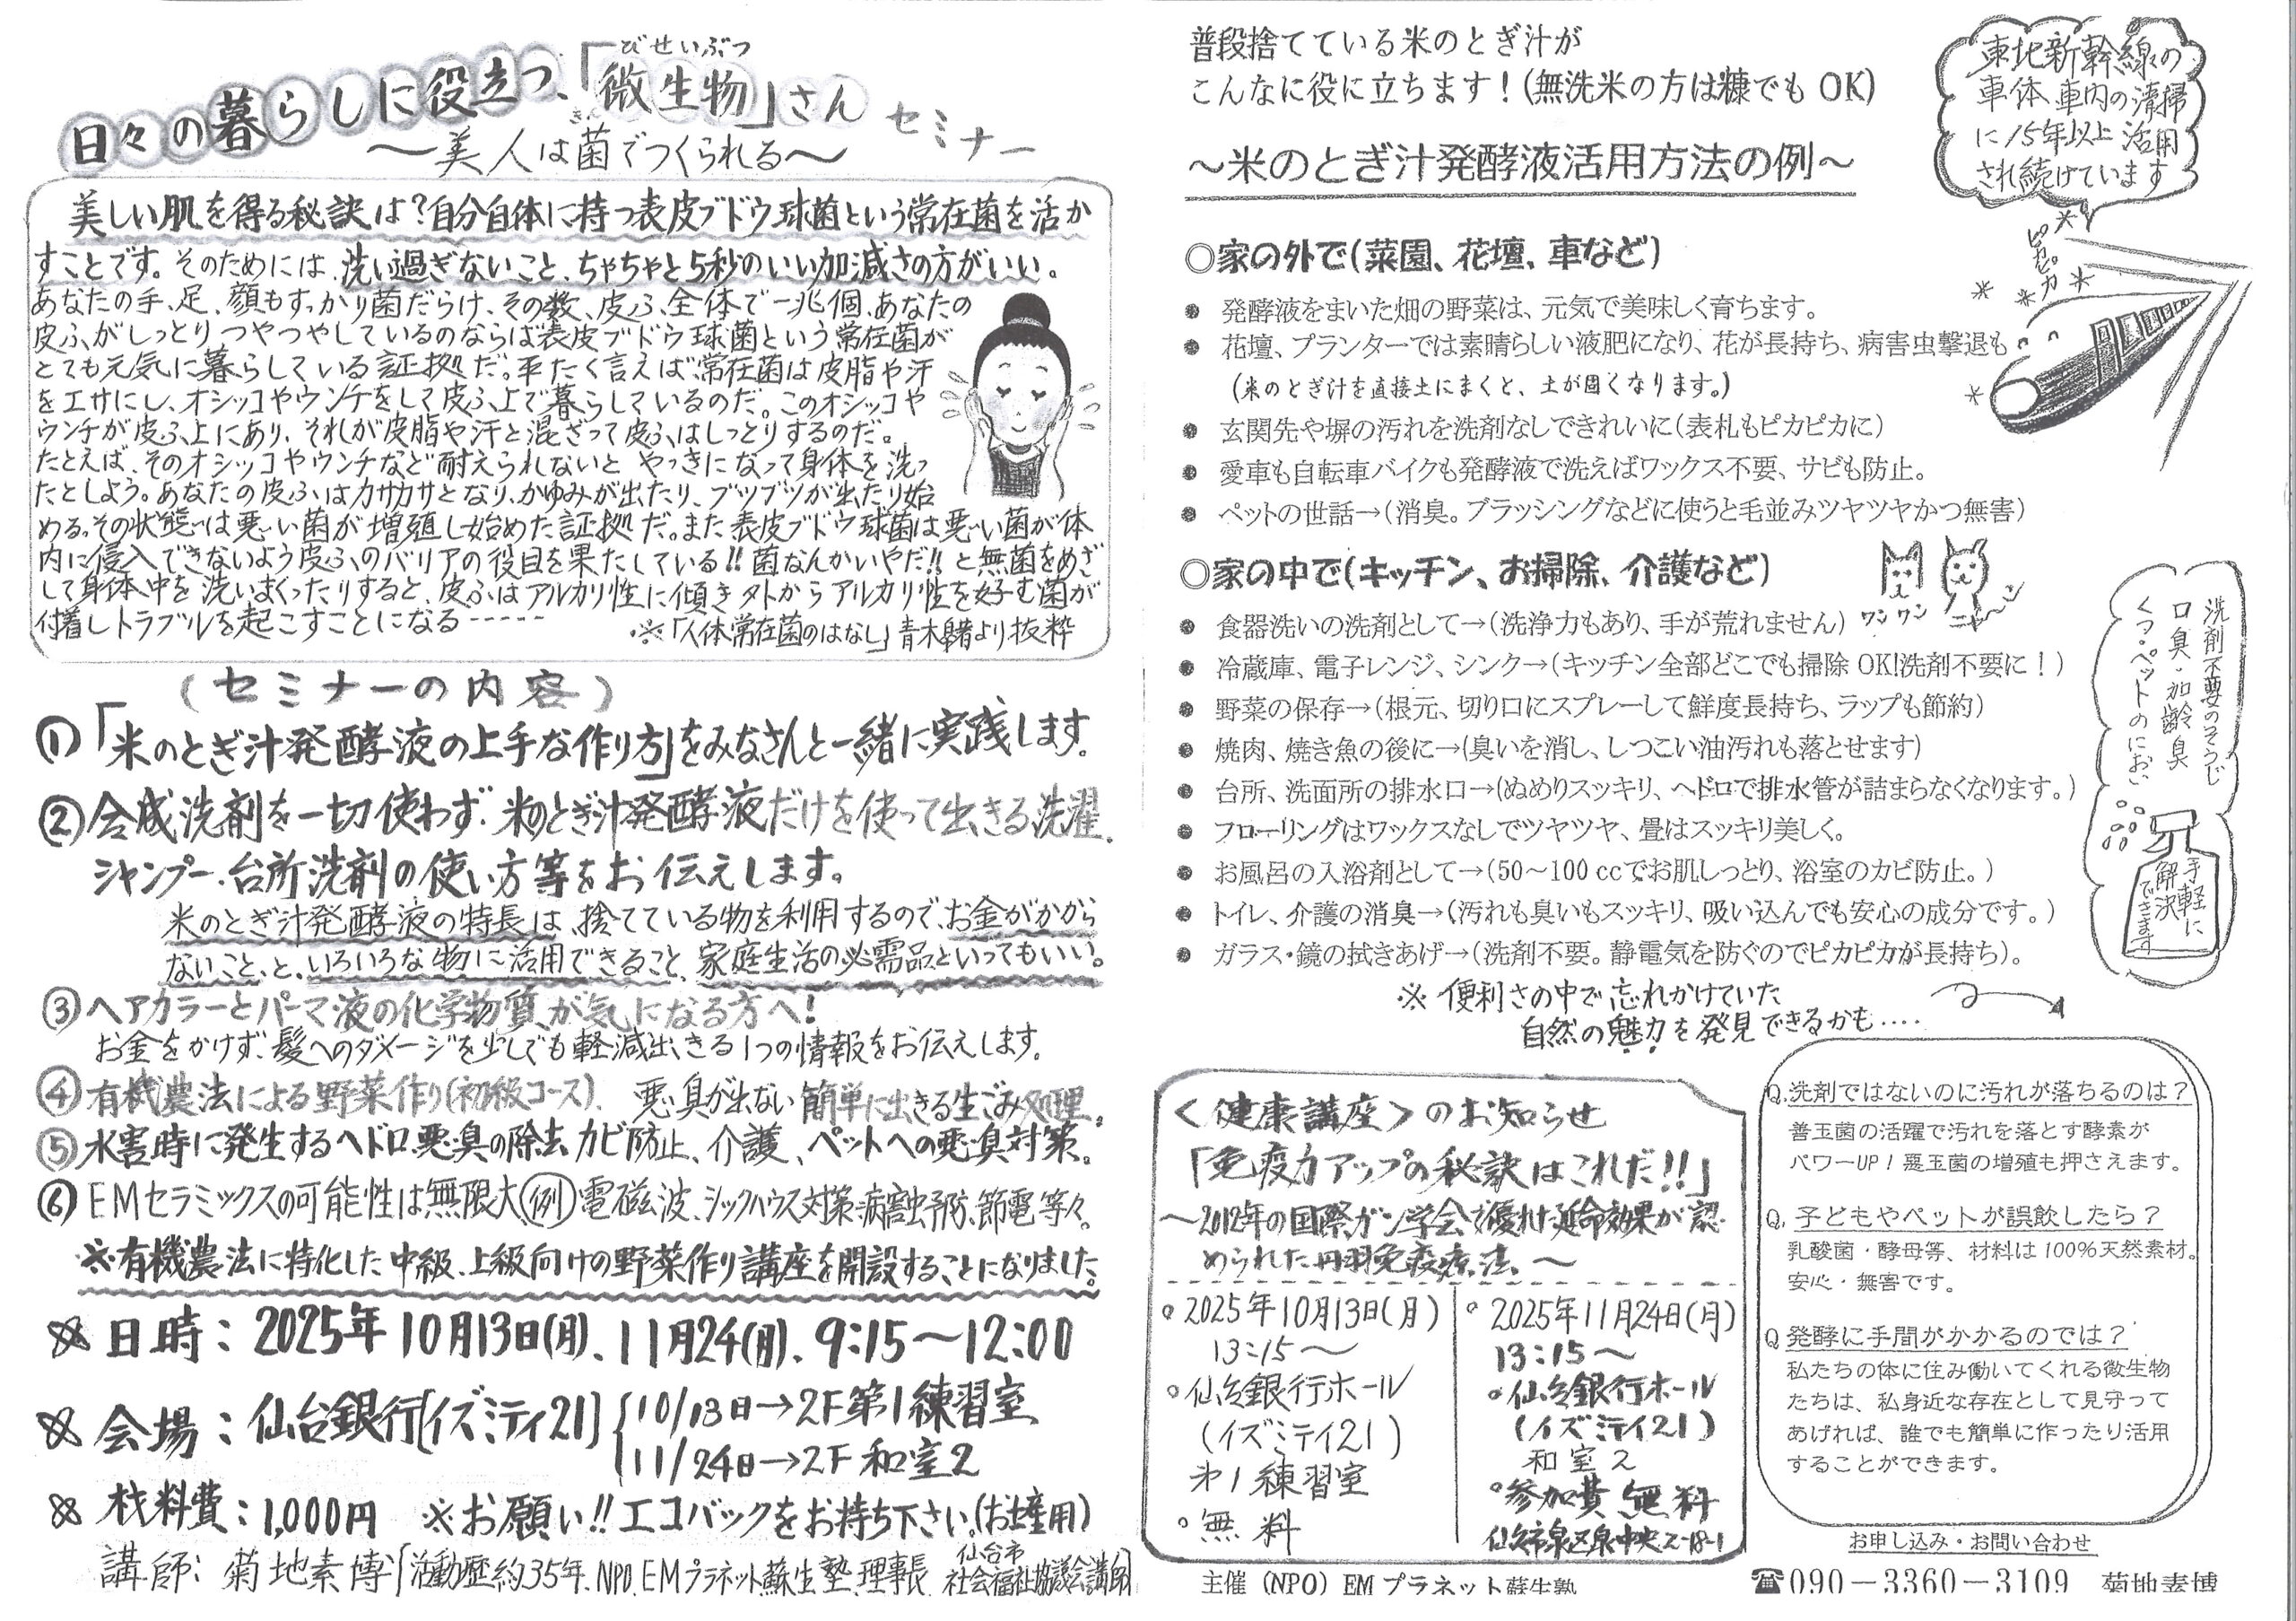 日々の暮らしに役立つ、「微生物」さん セミナー
びせいぶつ
〜美人は菌でつくられる〜
きん
美しい肌を得る秘訣は？自分自体に持つ表皮ブドウ球菌という常在菌を活か
すことです。そのためには、洗い過ぎないこと、ちゃちゃと5秒のいい加減さの方がいい。
あなたの手、足、顔もすっかり菌だらけ、その数、皮ふ、全体で一兆個、あなたの
皮ふがしっとりつやつやしているのならば表皮ブドウ球菌という常在菌が
とても元気に暮らしている証拠だ。平たく言えば常在菌は皮脂や汗
をエサにし、オシッコやウンチをして皮ふ上で暮らしているのだ。このオシッコや
ウンチが皮ふ上にあり、それが皮脂や汗と混ざって皮ふはしっとりするのだ。
たとえば、そのオシッコやウンチなど耐えられないと やっきになって身体を洗っ
たとしよう。あなたの皮ふはカサカサとなり、かゆみが出たり、ブツブツが出たり始
める。その状態は悪い菌が増殖し始めた証拠だ。また表皮ブドウ球菌は悪い菌が体
内に侵入できないよう皮ふのバリアの役目を果たしている!!菌なんかいやだ!!と無菌をめざ
して身体中を洗いまくったりすると、皮ふはアルカリ性に傾き外からアルカリ性を好む菌が
付着しトラブルを起こすことになる-----
※「人体常在菌のはなし」青木皐著より抜粋
(セミナーの内容)
①「米のとぎ汁発酵液の上手な作り方」をみなさんと一緒に実践します。
②合成洗剤を一切使わず、米のとぎ汁発酵液だけを使って出きる洗濯、
シャンプー、台所洗剤の使い方等をお伝えします。
米のとぎ汁発酵液の特長は、捨てている物を利用するので、お金がかから
ないこと、と、いろいろな物に活用できること、家庭生活の必需品といってもいい。
③ヘアカラーとパーマ液の化学物質が気になる方へ！
お金をかけず、髪へのダメージを少しでも軽減出きる1つの情報をお伝えします。
④有機農法による野菜作り(初級コース)、悪臭が出ない簡単に出きる生ごみ処理。
⑤水害時に発生するヘドロ悪臭の除去、カビ防止、介護、ペットへの悪臭対策。
⑥EMセラミックスの可能性は無限大(例)電磁波、シックハウス対策、病害虫予防、節電等々。
※有機農法に特化した中級、上級向けの野菜作り講座を開設することになりました。
※日時：2025年10月13日(月)、11月24(月)、9:15〜12:00
※会場：仙台銀行[イズミティ21]
10/13日→2F第1練習室
11/24日→2F和室2
※材料費：1,000円 ※お願い!!エコバックをお持ち下さい。(お土産用)
講師：菊地素博 活動歴約35年、NPO、EMプラネット蘇生塾理事長 仙台市社会福祉協議会講師
普段捨てている米のとぎ汁が
こんなに役に立ちます！(無洗米の方は糠でもOK)
〜米のとぎ汁発酵液活用方法の例〜
東北新幹線の
車体、車内の清掃
に15年以上活用
され続けています
ピカピカ
◎家の外で(菜園、花壇、車など)
● 発酵液をまいた畑の野菜は、元気で美味しく育ちます。
● 花壇、プランターでは素晴らしい液肥になり、花が長持ち、病害虫撃退も
(米のとぎ汁を直接土にまくと、土が固くなります。)
● 玄関先や塀の汚れを洗剤なしできれいに(表札もピカピカに)
● 愛車も自転車バイクも発酵液で洗えばワックス不要、サビも防止。
● ペットの世話→(消臭。ブラッシングなどに使うと毛並みツヤツヤかつ無害)
◎家の中で(キッチン、お掃除、介護など)
ワンワン
ニャ〜ン
● 食器洗いの洗剤として→(洗浄力もあり、手が荒れません)
● 冷蔵庫、電子レンジ、シンク→(キッチン全部どこでも掃除OK!洗剤不要に！)
● 野菜の保存→(根元、切り口にスプレーして鮮度長持ち、ラップも節約)
● 焼肉、焼き魚の後に→(臭いを消し、しつこい油汚れも落とせます)
● 台所、洗面所の排水口→(ぬめりスッキリ、ヘドロで排水管が詰まらなくなります。)
● フローリングはワックスなしでツヤツヤ、畳はスッキリ美しく。
● お風呂の入浴剤として→(50〜100ccでお肌しっとり、浴室のカビ防止。)
● トイレ、介護の消臭→(汚れも臭いもスッキリ、吸い込んでも安心の成分です。)
● ガラス・鏡の拭きあげ→(洗剤不要。静電気を防ぐのでピカピカが長持ち)。
洗剤不要のそうじ
口臭・加齢臭
くつ・ペットのにおい
手軽に
解決
できます
※ 便利さの中で忘れかけていた
自然の魅力を発見できるかも‥‥
＜健康講座＞のお知らせ
「免疫力アップの秘訣はこれだ!!」
〜2012年の国際ガン学会で優れた延命効果が認
められた丹羽免疫療法〜
○2025年10月13日(月)
13:15〜
○仙台銀行ホール
(イズミティ21)
第1練習室
○無料
○2025年11月24日(月)
13:15〜
○仙台銀行ホール
(イズミティ21)
和室2
○参加費無料
仙台市泉区泉中央2-18-1
Q.洗剤ではないのに汚れが落ちるのは？
善玉菌の活躍で汚れを落とす酵素が
パワーUP！悪玉菌の増殖も押さえます。
Q.子どもやペットが誤飲したら？
乳酸菌・酵母等、材料は100%天然素材。
安心・無害です。
Q 発酵に手間がかかるのでは？
私たちの体に住み働いてくれる微生物
たちは、私身近な存在として見守って
あげれば、誰でも簡単に作ったり活用
することができます。
お申し込み・お問い合わせ
主催（NPO）EMプラネット蘇生塾
☎090－3360－3109 菊地素博